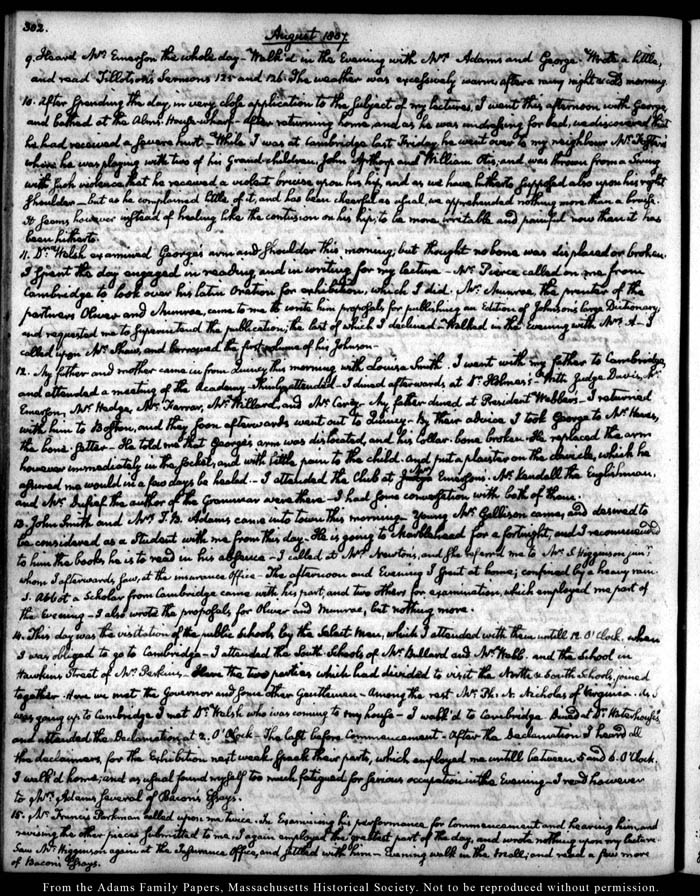 302.
August 1807.
9. Heard Mr. Emerson the whole day - Walk'd in the Evening with Mrs. Adams and George. Wrote a little,
and read Tillotson's Sermons 125 and 126. The weather was excessively warm, after a rainy night and morning.
10. After spending the day, in very close application to the subject of my lectures, I went this afternoon with George,
and bathed at the Alms-House wharf - After returning home, and as he was undressing for bed, we discovered that
he had received a severe hurt - While I was at Cambridge last Friday, he went over to my neighbour Mr. Foster's
where he was playing with two of his Grand-children, John Apthorp and William Otis, and was thrown from a Swing
with such violence that he received a violent bruise upon his hip, and as we have hitherto supposed also upon his right
shoulder - but as he complained little of it, and has been cheerful as usual, we apprehended nothing more than a bruise.
It seems however instead of healing like the contusion on his hip, to be more irritable and painful now than it has
been hitherto.
11. Dr. Welsh examined George's arm and shoulder this morning; but thought no bone was displaced or broken.
I spent the day engaged in reading, and in writing for my lecture - Mr. Peirce called on me from
Cambridge to look over his latin Oration for exhibition, which I did. Mr. Munroe, the printer of the
partners Oliver and Munroe, came to me to write him proposals for publishing an Edition of Johnson's large Dictionary,
and requested me to superintend the publication; the last of which I declined - Walked in the Evening with Mrs. A - I
called upon Mr. Shaw, and borrowed the first volume of his Johnson -
12. My father and mother came in from Quincy this morning with Louisa Smith. I went with my father to Cambridge,
and attended a meeting of the Academy - Thinly attended - I dined afterwards, at Dr. Holmes's - With Judge Davis, Mr.
Emerson, Mr. Hedge, Mr. Farrar, Mr. Willard, and Mr. Carey - My father dined at President Webber's - I returned
with him to Boston, and they soon afterwards went out to Quincy - By their advice I took George to Mr. Hewes,
the bone-setter - He told me that George's arm was dislocated, and his collar-bone broken - He replaced the arm
however immediately in the socket, and with little pain to the child - and put a plaister on the clavicle, which he
assured me would in a few days be healed - I attended the Club at Mr. Emerson's. Mr. Kendall the Englishman,
and Mr. the author of the Grammar were there - I had some conversation with both of them.
13. John Smith and Mrs. T. B. Adams came into town this morning - Young Mr. Gallison came, and desired to
be considered as a student with me from this day - He is going to Marblehead for a fortnight, and I recommended
to him the books he is to read in his absence - I called at Mr. Newton's, and she referred me to Mr. S. Higginson junr.
whom I afterwards saw, at the insurance Office - The afternoon and Evening I spent at home; confined by a heavy rain.
J. Abbot a Scholar from Cambridge came with his part, and two others for examination, which employed me part of
the Evening - I also wrote the proposals for Oliver and Munroe, but nothing more.
14. This day was the visitation of the public Schools by the Select Men, which I attended with them untill 12. O'Clock. when
I was obliged to go to Cambridge - I attended the South Schools of Mr. Bullard and Mr. Webb. and the School in
Hawkins Street of Mr. Perkins - Here the two parties which had divided to visit the North & South Schools, joined
together - Here we met the Governor and some other Gentlemen - Among the rest Mr. Ph. N. Nicholas of Virginia - As I
was going up to Cambridge I met Dr. Welsh who was coming to my house - I walk'd to Cambridge. Dined at Dr. Waterhouse's
and attended the Declamation, at 2. O'Clock - The last before Commencement - After the Declamation I heard all
the declaimers, for the Exhibition next week, speak their parts, which employed me untill between 5 and 6. O'Clock.
I walk'd home; and as usual found myself too much fatigued for serious occupation in the Evening - I read however
to Mrs. Adams several of Bacon's Essays.
15. Mr. Francis Parkman called upon me twice. In Examining his performance for Commencement and hearing him, and
revising the other pieces submitted to me, I again employed the greatest part of the day, and wrote nothing upon my lecture.
Saw Mr. Higginson again at the Insurance Office, and settled with him - Evening walk in the Mall; and read a few more
of Bacon's Essays.
From the Adams Family Papers, Massachusetts Historical Society. Not to be reproduced without permission.